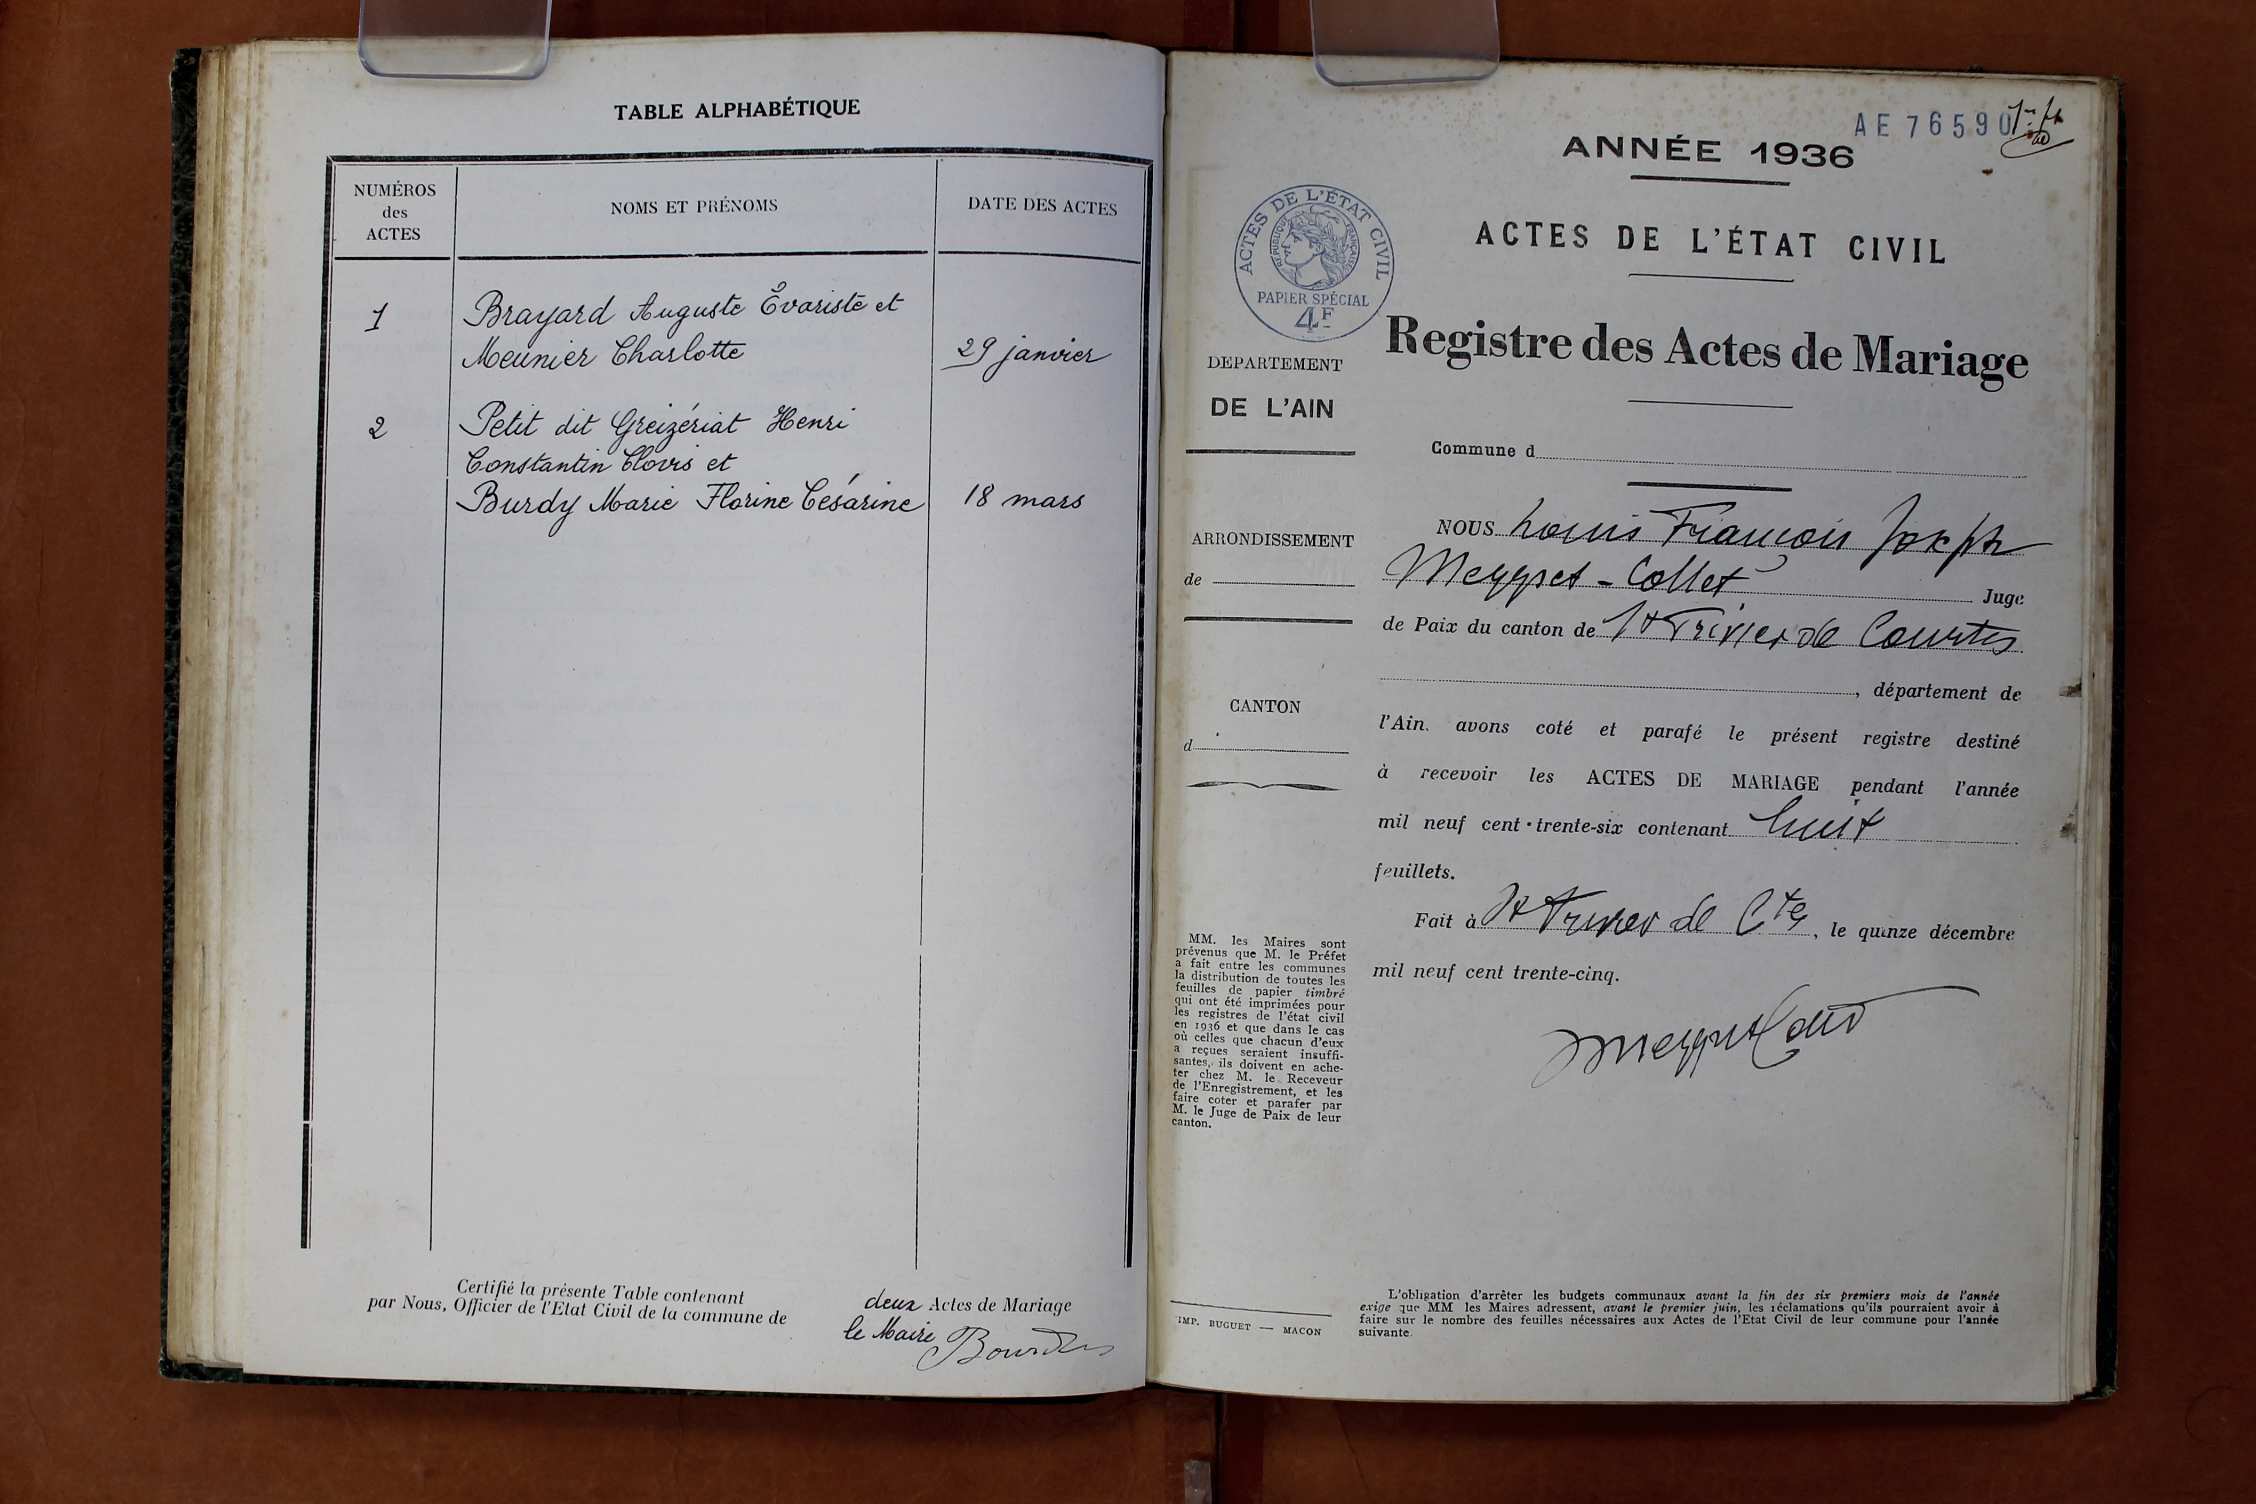 TABLE ALPHABÉTIQUE
NUMÉROS
des
ACTES
NOMS ET PRÉNOMS
DATE DES ACTES
1
Brayard Auguste Évariste et
Meunier Charlotte
29 janvier
2
Petit dit Greizériat Henri
Constantin Clovis et
Burdy Marie Florine Césarine
18 mars
Certifié la présente Table contenant deux Actes de Mariage
par Nous, Officier de l'Etat Civil de la commune de
le Maire
AE 76590
ANNÉE 1936
ACTES DE L'ÉTAT CIVIL
RÉPUBLIQUE FRANÇAISE
PAPIER SPÉCIAL
4F
ACTES DE L'ÉTAT CIVIL
Registre des Actes de Mariage
DEPARTEMENT
DE L'AIN
Commune d
ARRONDISSEMENT
de
CANTON
d
NOUS Louis François Joseph
Meyssget-Collet Juge
de Paix du canton de St Trivier de Courtes
, département de
l'Ain. avons coté et parafé le présent registre destiné
à recevoir les ACTES DE MARIAGE pendant l'année
mil neuf cent trente-six contenant huit
feuillets.
Fait à St Trivier de Ctes, le quinze décembre
mil neuf cent trente-cinq.
MM. les Maires sont
prévenus que M. le Préfet
a fait entre les communes
la distribution de toutes les
feuilles de papier timbré
qui ont été imprimées pour
les registres de l'état civil
en 1936 et que dans le cas
où celles que chacun d'eux
a reçues seraient insuffi-
santes, ils doivent en ache-
ter chez M. le Receveur
de l'Enregistrement, et les
faire coter et parafer par
M. le Juge de Paix de leur
canton.
IMP. BUGUET — MACON
L'obligation d'arrêter les budgets communaux avant la fin des six premiers mois de l'année
exige que MM les Maires adressent, avant le premier juin, les réclamations qu'ils pourraient avoir à
faire sur le nombre des feuilles nécessaires aux Actes de l'Etat Civil de leur commune pour l'année
suivante.